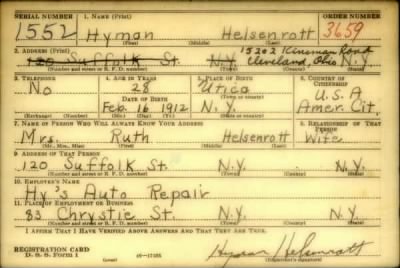 SERIAL NUMBER 1. NAME (Print) ORDER NUMBER
1552 Hyman Helsenrott 3659
(First) (Middle) (Last)
2. ADDRESS (Print) 15202 Kinsman Road
120 Suffolk St. N.Y. Cleveland, Ohio N.Y.
(Number and street or R. F. D. number) (Town) (County) (State)
3. TELEPHONE 4. AGE IN YEARS 5. PLACE OF BIRTH 6. COUNTRY OF CITIZENSHIP
No 28 Utica U.S.A
DATE OF BIRTH (Town or county)
Feb. 16 1912 N.Y. Amer. Cit.
(Exchange) (Number) (Mo.) (Day) (Yr.) (State or country)
7. NAME OF PERSON WHO WILL ALWAYS KNOW YOUR ADDRESS 8. RELATIONSHIP OF THAT PERSON
Mrs. Ruth Helsenrott Wife
(Mr., Mrs., Miss) (First) (Middle) (Last)
9. ADDRESS OF THAT PERSON
120 Suffolk St. N.Y. N.Y.
(Number and street or R. F. D. number) (Town) (County) (State)
10. EMPLOYER'S NAME
Hy's Auto Repair
11. PLACE OF EMPLOYMENT OR BUSINESS
83 Chrystie St. N.Y. N.Y.
(Number and street or R. F. D. number) (Town) (County) (State)
I AFFIRM THAT I HAVE VERIFIED ABOVE ANSWERS AND THAT THEY ARE TRUE.
REGISTRATION CARD
D. S. S. Form 1 (over) 16-17105 Hyman Helsenrott